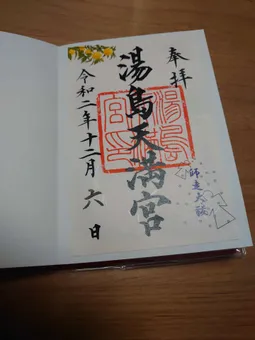 奉拝
湯島天満宮
令和二年十二月六日
師走大祓